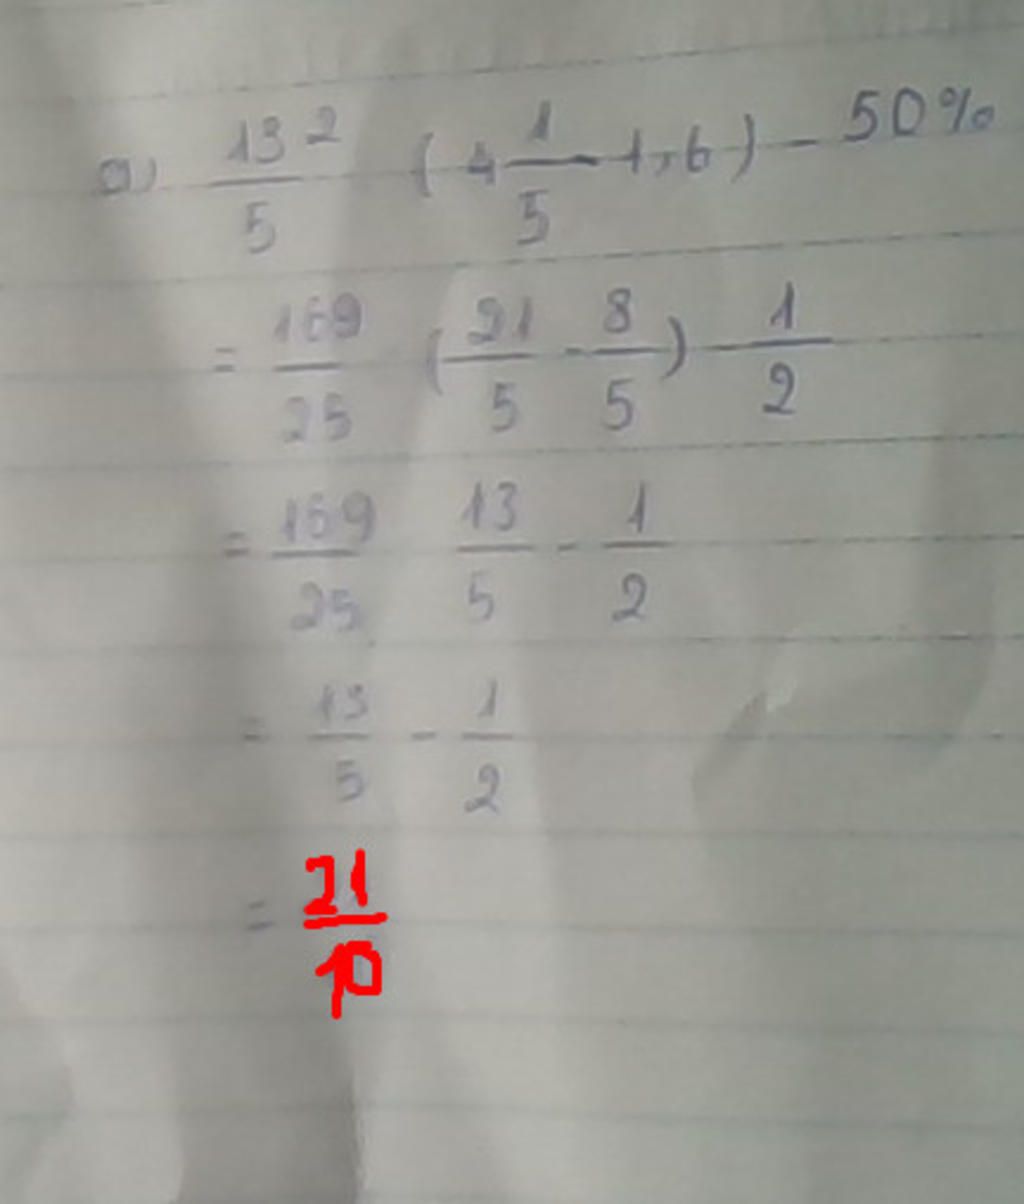 a) 13²/5 (4 1/5 - 1,6) - 50%
= 169/25 (21/5 - 8/5) - 1/2
= 169/25 13/5 - 1/2
= 13/5 - 1/2
= 21/10